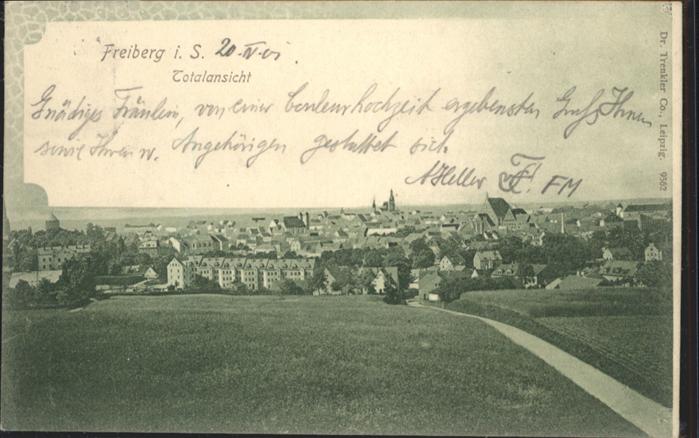 Freiberg i. S. 20-IV-01.
Totalansicht
Gnädiges Fräulein, von einer Couleurhochzeit ergebensten Gruß Ihnen
sowie Ihren w. Angehörigen gestattet sich
A Heller FM
Dr. Trenkler Co., Leipzig. 9562